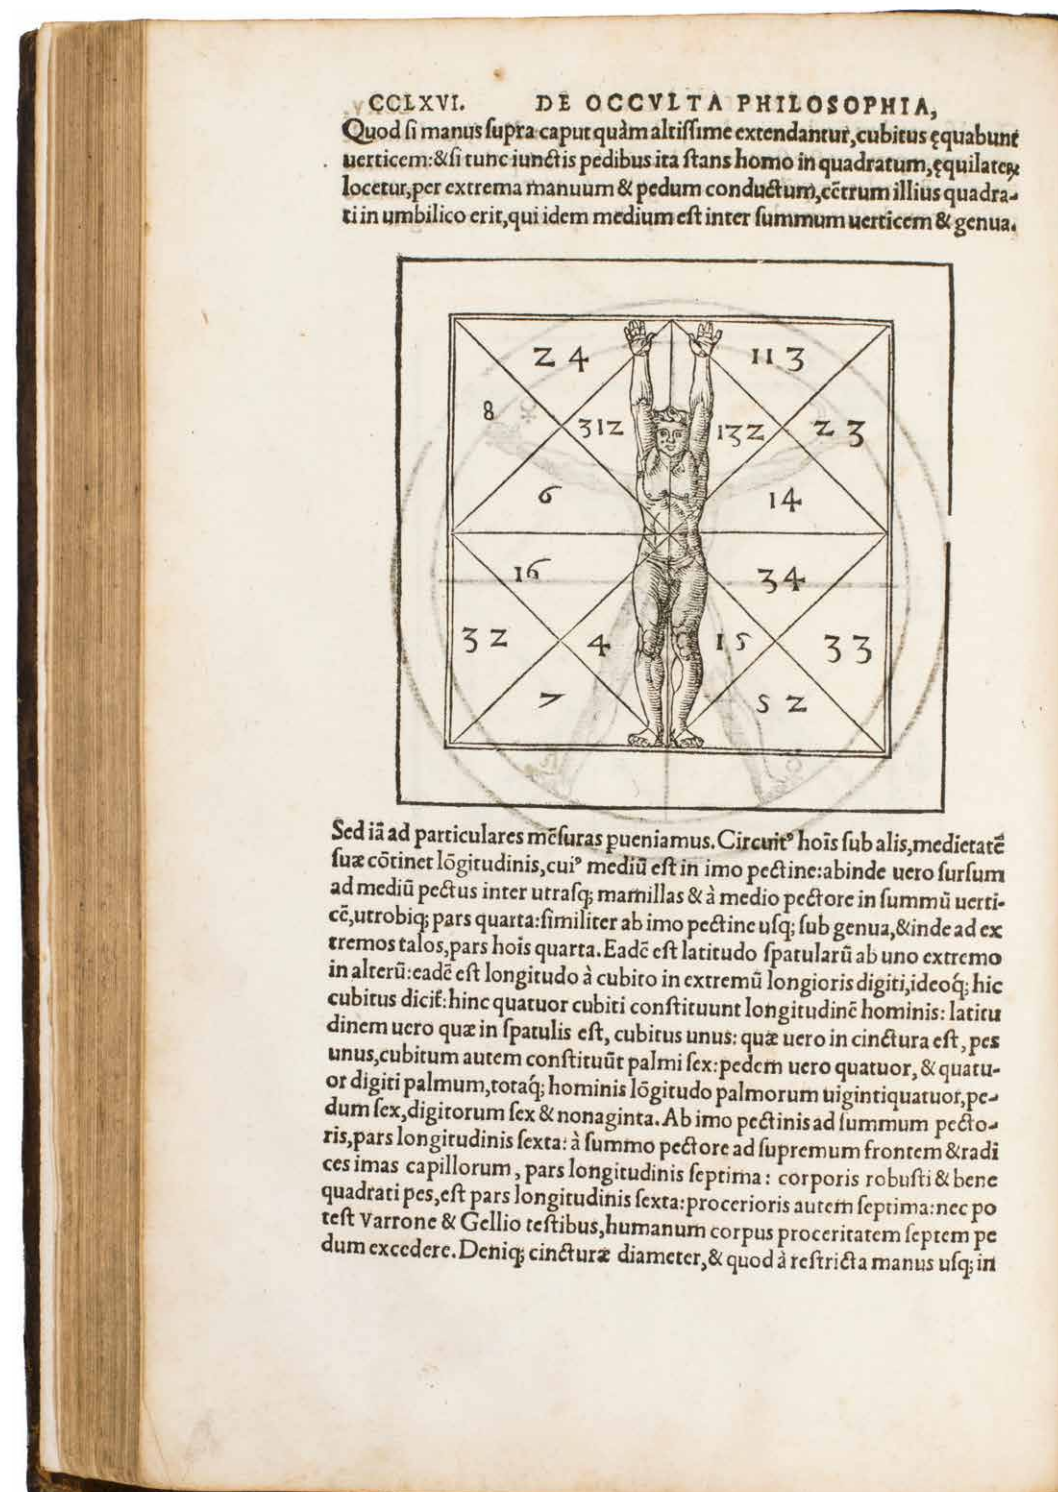 CCLXVI. DE OCCVLTA PHILOSOPHIA,
Quod ſi manus ſupra caput quàm altiſſime extendantur, cubitus ęquabunt
uerticem: & ſi tunc iunctis pedibus ita ſtans homo in quadratum, ęquilateꝝ
locetur, per extrema manuum & pedum conductum, cẽtrum illius quadra-
ti in umbilico erit, qui idem medium eſt inter ſummum uerticem & genua.
24 113
8 312 132 23
6 14
16 34
32 4 15 33
7 52
Sed iã ad particulares mẽſuras pueniamus. Circuitꝰ hoĩs ſub alis, medietatẽ
ſuæ cõtinet lõgitudinis, cuiꝰ mediũ eſt in imo pectine: abinde uero ſurſum
ad mediũ pectus inter utraſq; mamillas & à medio pectore in ſummũ uerti-
cẽ, utrobiq; pars quarta: ſimiliter ab imo pectine uſq; ſub genua, & inde ad ex
tremos talos, pars hoĩs quarta. Eadẽ eſt latitudo ſpatularũ ab uno extremo
in alterũ: eadẽ eſt longitudo à cubito in extremũ longioris digiti, ideoq́; hic
cubitus dicit̃: hinc quatuor cubiti conſtituunt longitudinẽ hominis: latitu
dinem uero quæ in ſpatulis eſt, cubitus unus: quæ uero in cinctura eſt, pes
unus, cubitum autem conſtituũt palmi ſex: pedem uero quatuor, & quatu-
or digiti palmum, totaq́; hominis lõgitudo palmorum uigintiquatuor, pe-
dum ſex, digitorum ſex & nonaginta. Ab imo pectinis ad ſummum pecto-
ris, pars longitudinis ſexta: à ſummo pectore ad ſupremum frontem & radi
ces imas capillorum, pars longitudinis ſeptima: corporis robuſti & bene
quadrati pes, eſt pars longitudinis ſexta: procerioris autem ſeptima: nec po
teſt Varrone & Gellio teſtibus, humanum corpus proceritatem ſeptem pe
dum excedere. Deniq; cincturæ diameter, & quod à reſtricta manus uſq; in